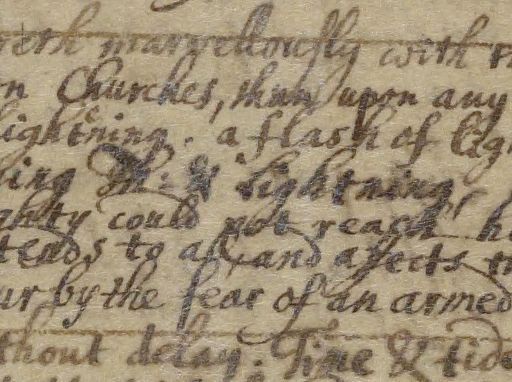 reth marvellously with
on Churches, than upon any
lightening. a flash of lig
ning Th: & lightning
ghty could not reach h
tends to all and affects th
ur by the fear of an armed
thout delay. Time & tide